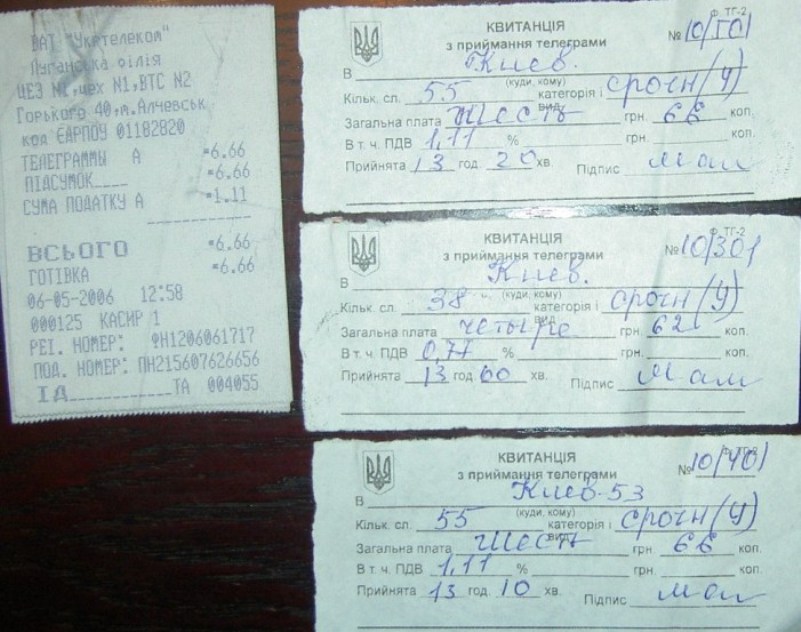 ВАТ "Укртелеком"
Луганська філія
ЦЕЗ №1,цех N1,ВТС N2
Горького 40,м.Алчевськ
код ЄАРПОУ 01182820
ТЕЛЕГРАММЫ А *6.66
ПІДСУМОК____ *6.66
СУМА ПОДАТКУ А *1.11
ВСЬОГО *6.66
ГОТІВКА *6.66
06-05-2006 12:58
000125 КАСИР 1
РЕІ. НОМЕР: ФН1206061717
ПОД. НОМЕР: ПН215607626656
ІД____________ТА 004055
Ф. ТГ-2
КВИТАНЦІЯ
з приймання телеграми № 10/101
В Киев.
(куди, кому)
Кільк. сл. 55 категорія і вид срочн (У)
Загальна плата шесть грн. 66 коп.
В т. ч. ПДВ 1,11 % грн. коп.
Прийнята 13 год. 20 хв. Підпис
Ф. ТГ-2
КВИТАНЦІЯ
з приймання телеграми № 10/301
В Киев.
(куди, кому)
Кільк. сл. 38 категорія і вид срочн (У)
Загальна плата четыре грн. 62 коп.
В т. ч. ПДВ 0,77 % грн. коп.
Прийнята 13 год. 00 хв. Підпис
Ф. ТГ-2
КВИТАНЦІЯ
з приймання телеграми № 10/401
В Киев-53
(куди, кому)
Кільк. сл. 55 категорія і вид срочн (У)
Загальна плата шест грн. 66 коп.
В т. ч. ПДВ 1,11 % грн. коп.
Прийнята 13 год. 10 хв. Підпис